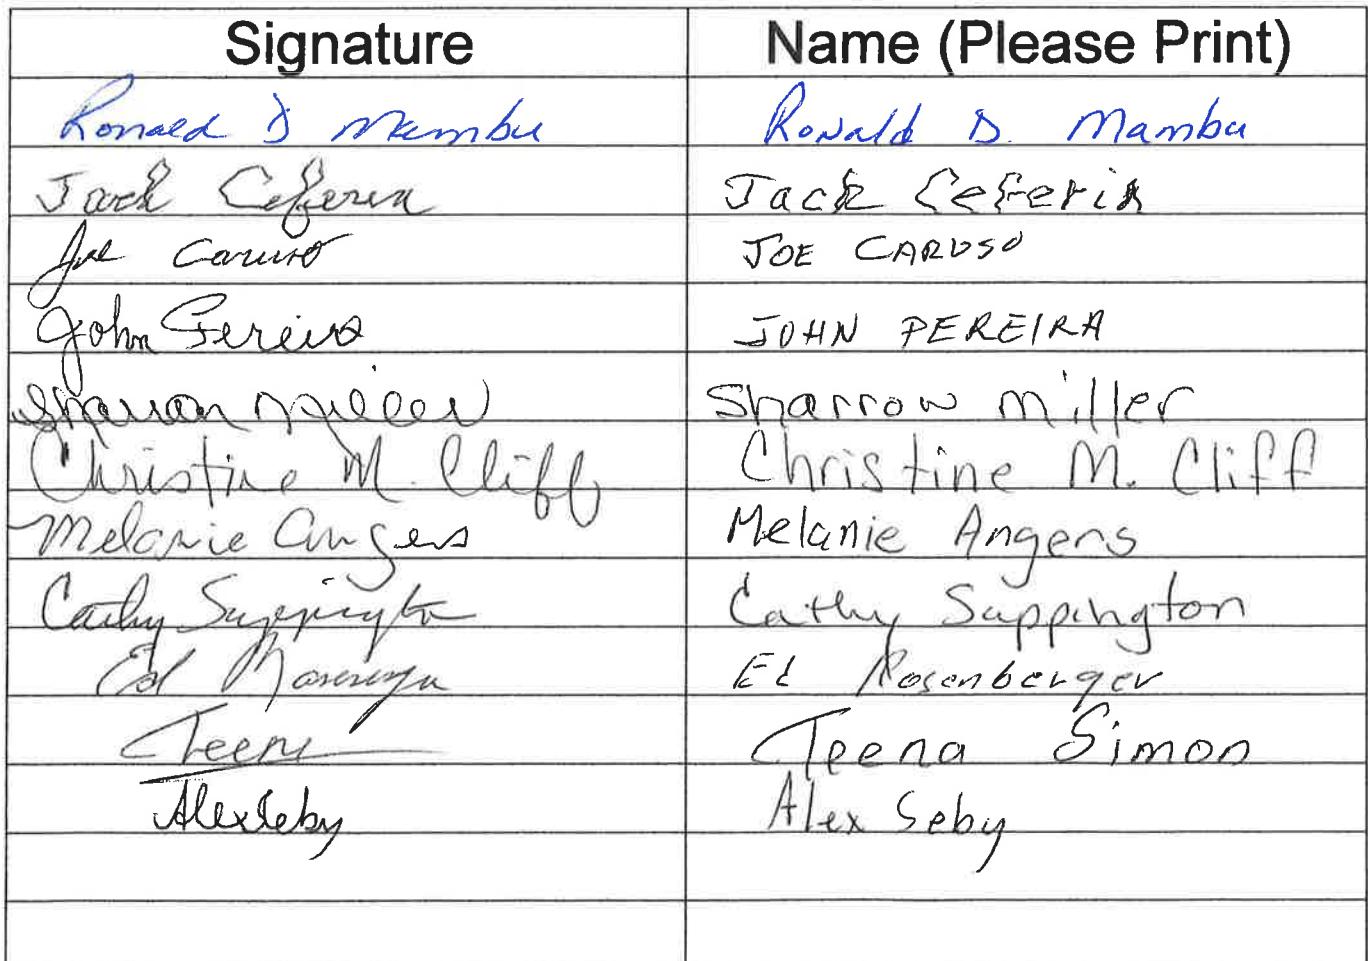 Signature Name (Please Print)
Ronald D Mambu Ronald D. Mambu
Jack Ceferin Jack Ceferin
Joe Caruso JOE CARUSO
John Pereira JOHN PEREIRA
Sharron Miller Sharron Miller
Christine M. Cliff Christine M. Cliff
Melanie Angers Melanie Angers
Cathy Sappington Cathy Sappington
Ed Ed Rosenberger
Teena Teena Simon
Alex Seby Alex Seby